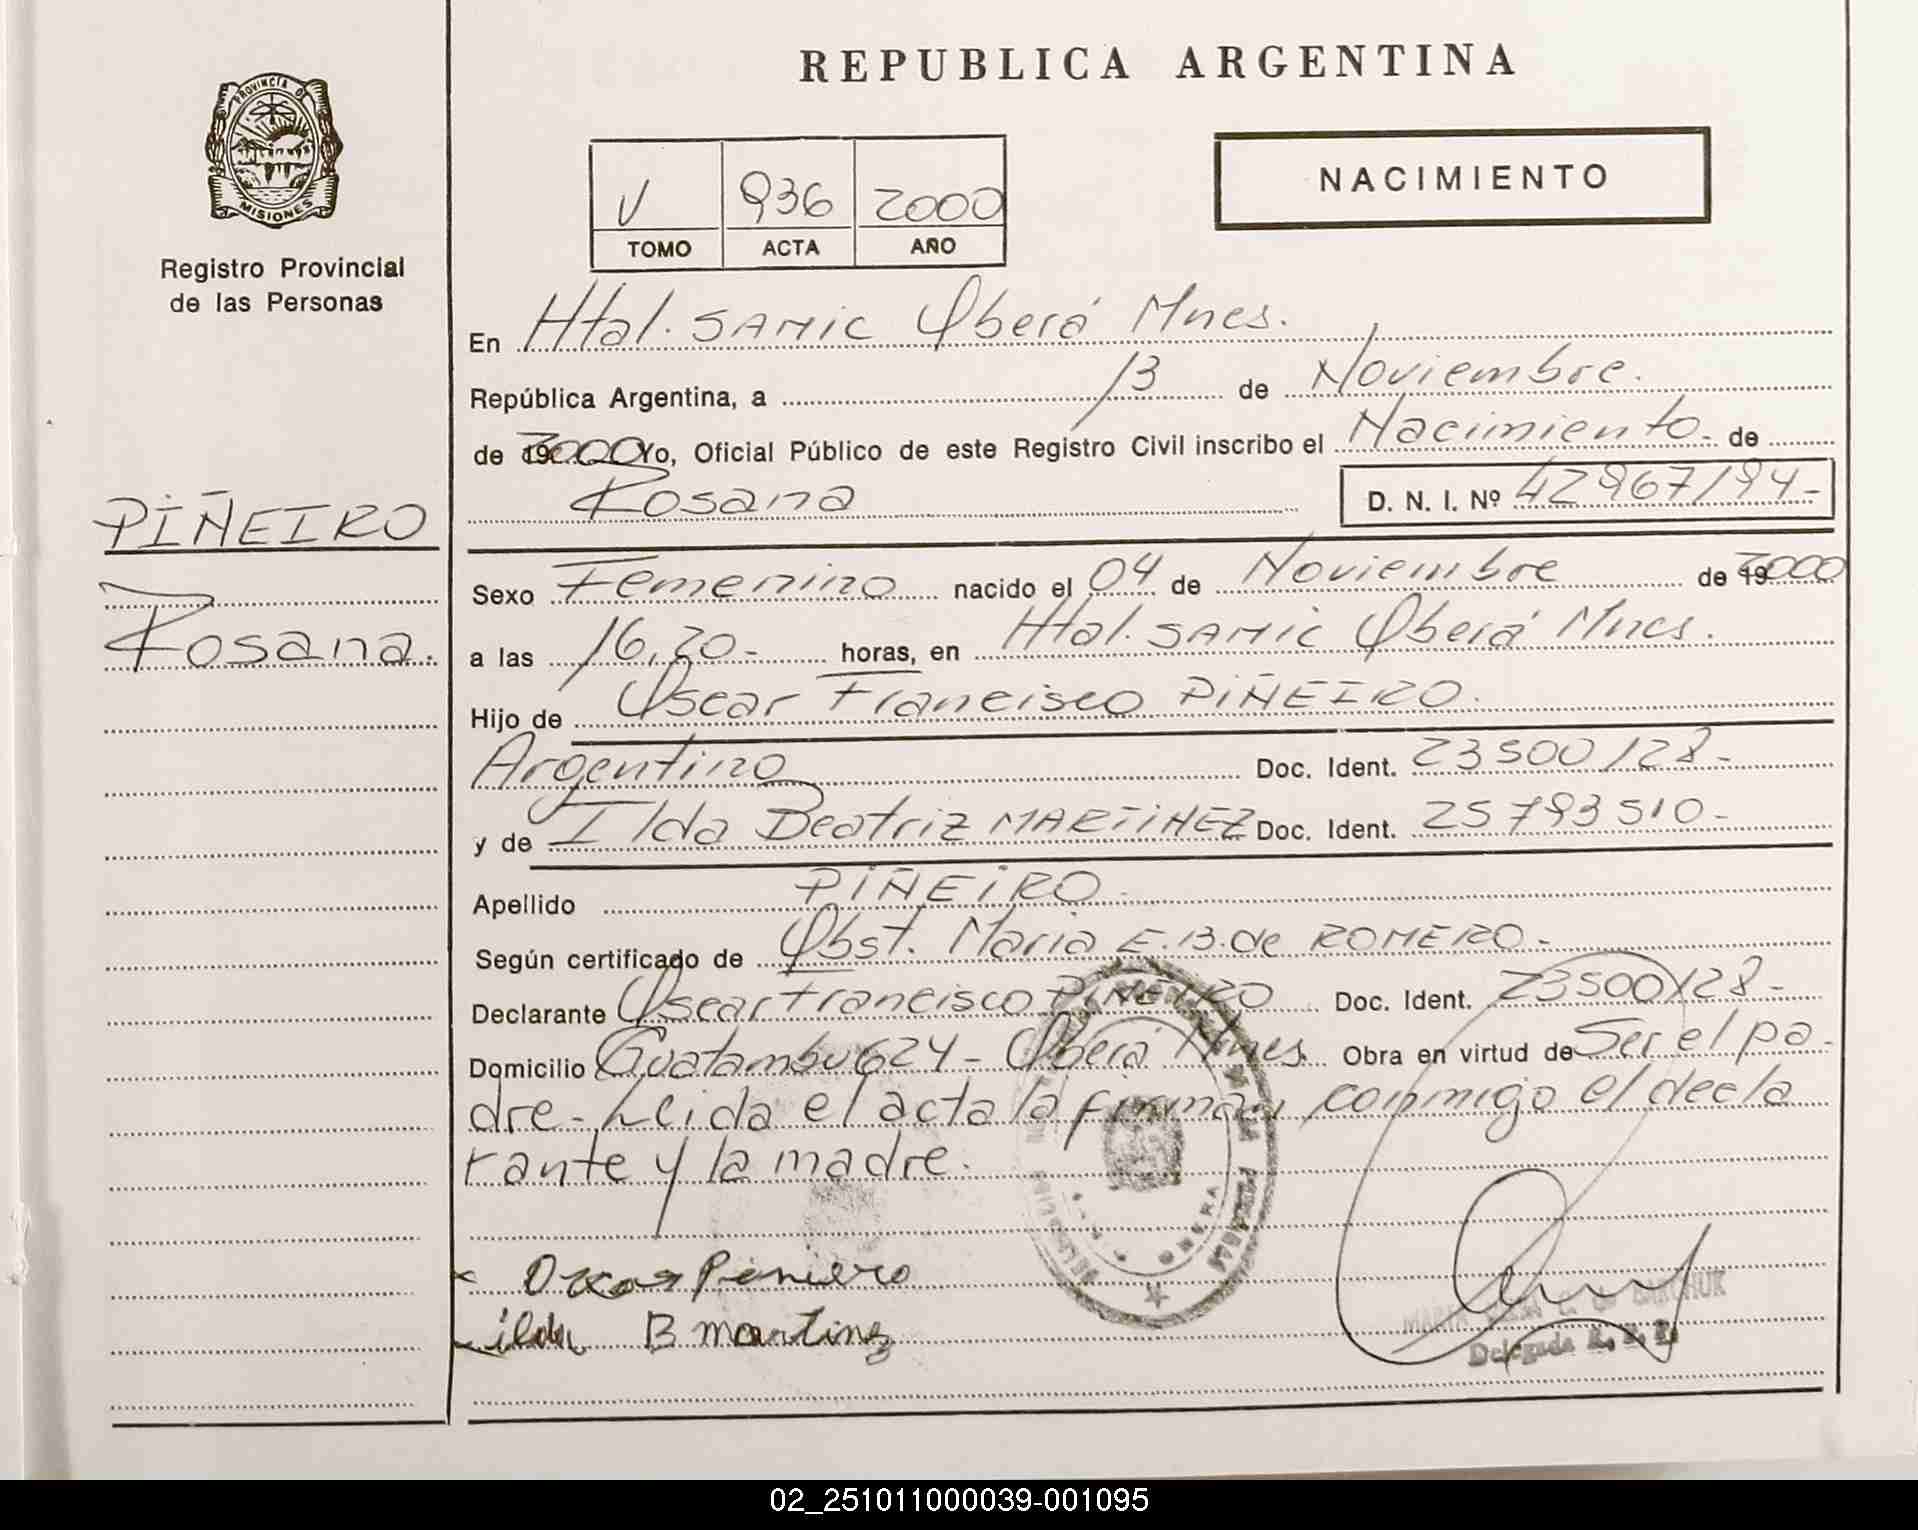 REPUBLICA ARGENTINA
PROVINCIA DE
MISIONES
Registro Provincial
de las Personas
V 936 2000
TOMO ACTA AÑO
NACIMIENTO
En Htal. SAMIC Oberá Mnes.
República Argentina, a 13 de Noviembre.
de 2000 Yo, Oficial Público de este Registro Civil inscribo el Nacimiento - de
Rosana D. N. I. Nº 42967194-
PIÑEIRO
Rosana.
Sexo Femenino nacido el 04 de Noviembre de 2000
a las 16,20- horas, en Htal. SAMIC Oberá Mnes.
Hijo de Oscar Francisco PIÑEIRO.
Argentino Doc. Ident. 23500128-
y de Ilda Beatriz MARTINEZ Doc. Ident. 25793510-
Apellido PIÑEIRO-
Según certificado de Obst. Maria E. B. de ROMERO-
Declarante Oscar Francisco PIÑEIRO Doc. Ident. 23500128-
Domicilio Guatambu 624 - Oberá Mnes. Obra en virtud de Ser el pa-
dre- Leida el acta la firman conmigo el decla
rante y la madre.
Piniero
ilda B martinz
MARIA
Delegada R. P. P.
02_251011000039-001095